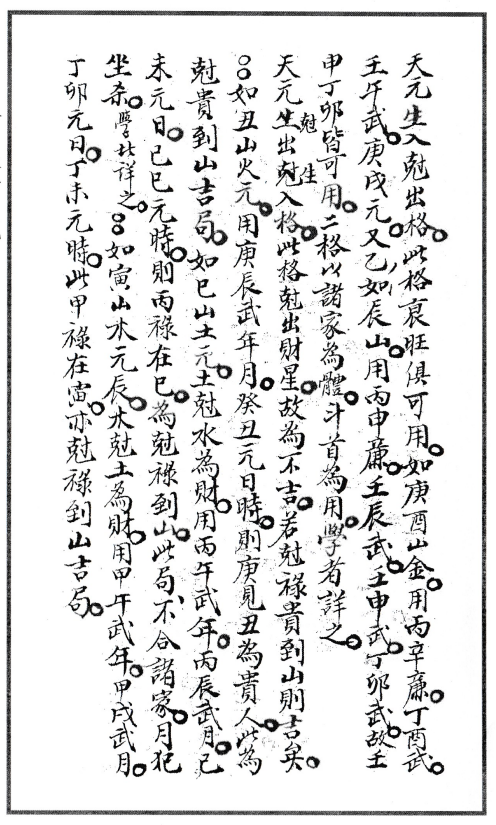 天元生入尅出格。此格衰旺俱可用。如庚酉山金。用丙辛廉。丁酉武。
壬午武。庚戌元。又乙如辰山。用丙申廉。壬辰武。壬申武。丁卯武。故壬
申丁卯皆可用。二格以諸家為體。斗首為用。學者詳之。
天元生出尅入格。此格尅出財星。故為不吉。若尅祿貴到山則吉矣。
尅生
○○如丑山火元。用庚辰武年月。癸丑元日時。則庚見丑為貴人。此為
尅貴到山吉局。如巳山土元。土尅水為財。用丙午武年。丙辰武月。己
未元日。己巳元時。則丙祿在巳。為尅祿到山。此局不合諸家。月犯
坐杀。學者詳之。○○如寅山水元辰。水尅土為財。用甲午武年。甲戌武月。
丁卯元日。丁未元時。此甲祿在寅。亦尅祿到山吉局。